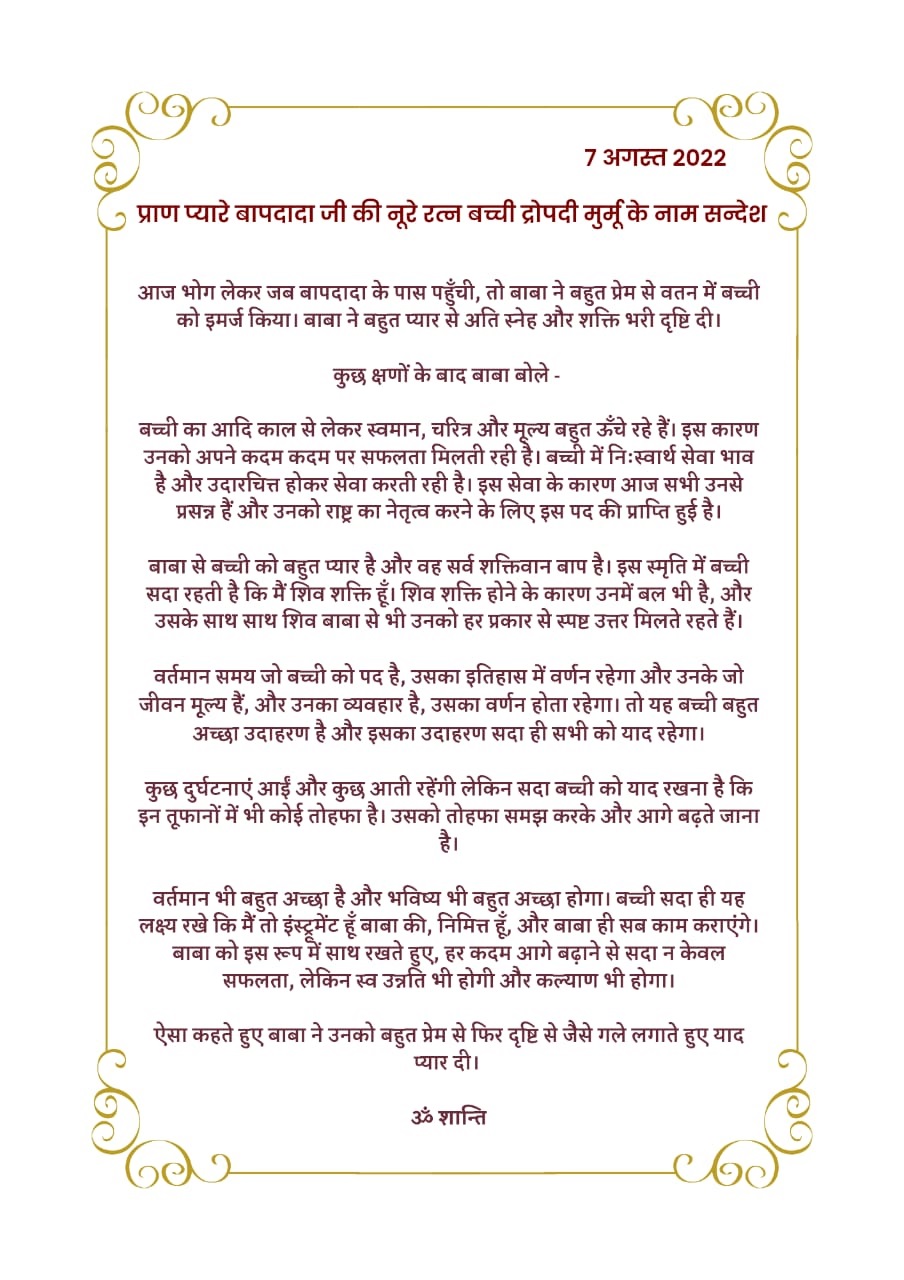 7 अगस्त 2022
प्राण प्यारे बापदादा जी की नूरे रत्न बच्ची द्रोपदी मुर्मू के नाम सन्देश
आज भोग लेकर जब बापदादा के पास पहुँची, तो बाबा ने बहुत प्रेम से वतन में बच्ची
को इमर्ज किया। बाबा ने बहुत प्यार से अति स्नेह और शक्ति भरी दृष्टि दी।
कुछ क्षणों के बाद बाबा बोले -
बच्ची का आदि काल से लेकर स्वमान, चरित्र और मूल्य बहुत ऊँचे रहे हैं। इस कारण
उनको अपने कदम कदम पर सफलता मिलती रही है। बच्ची में निःस्वार्थ सेवा भाव
है और उदारचित्त होकर सेवा करती रही है। इस सेवा के कारण आज सभी उनसे
प्रसन्न हैं और उनको राष्ट्र का नेतृत्व करने के लिए इस पद की प्राप्ति हुई है।
बाबा से बच्ची को बहुत प्यार है और वह सर्व शक्तिवान बाप है। इस स्मृति में बच्ची
सदा रहती है कि मैं शिव शक्ति हूँ। शिव शक्ति होने के कारण उनमें बल भी है, और
उसके साथ साथ शिव बाबा से भी उनको हर प्रकार से स्पष्ट उत्तर मिलते रहते हैं।
वर्तमान समय जो बच्ची को पद है, उसका इतिहास में वर्णन रहेगा और उनके जो
जीवन मूल्य हैं, और उनका व्यवहार है, उसका वर्णन होता रहेगा। तो यह बच्ची बहुत
अच्छा उदाहरण है और इसका उदाहरण सदा ही सभी को याद रहेगा।
कुछ दुर्घटनाएं आईं और कुछ आती रहेंगी लेकिन सदा बच्ची को याद रखना है कि
इन तूफानों में भी कोई तोहफा है। उसको तोहफा समझ करके और आगे बढ़ते जाना
है।
वर्तमान भी बहुत अच्छा है और भविष्य भी बहुत अच्छा होगा। बच्ची सदा ही यह
लक्ष्य रखे कि मैं तो इंस्ट्रूमेंट हूँ बाबा की, निमित्त हूँ, और बाबा ही सब काम कराएंगे।
बाबा को इस रूप में साथ रखते हुए, हर कदम आगे बढ़ाने से सदा न केवल
सफलता, लेकिन स्व उन्नति भी होगी और कल्याण भी होगा।
ऐसा कहते हुए बाबा ने उनको बहुत प्रेम से फिर दृष्टि से जैसे गले लगाते हुए याद
प्यार दी।
ॐ शान्ति